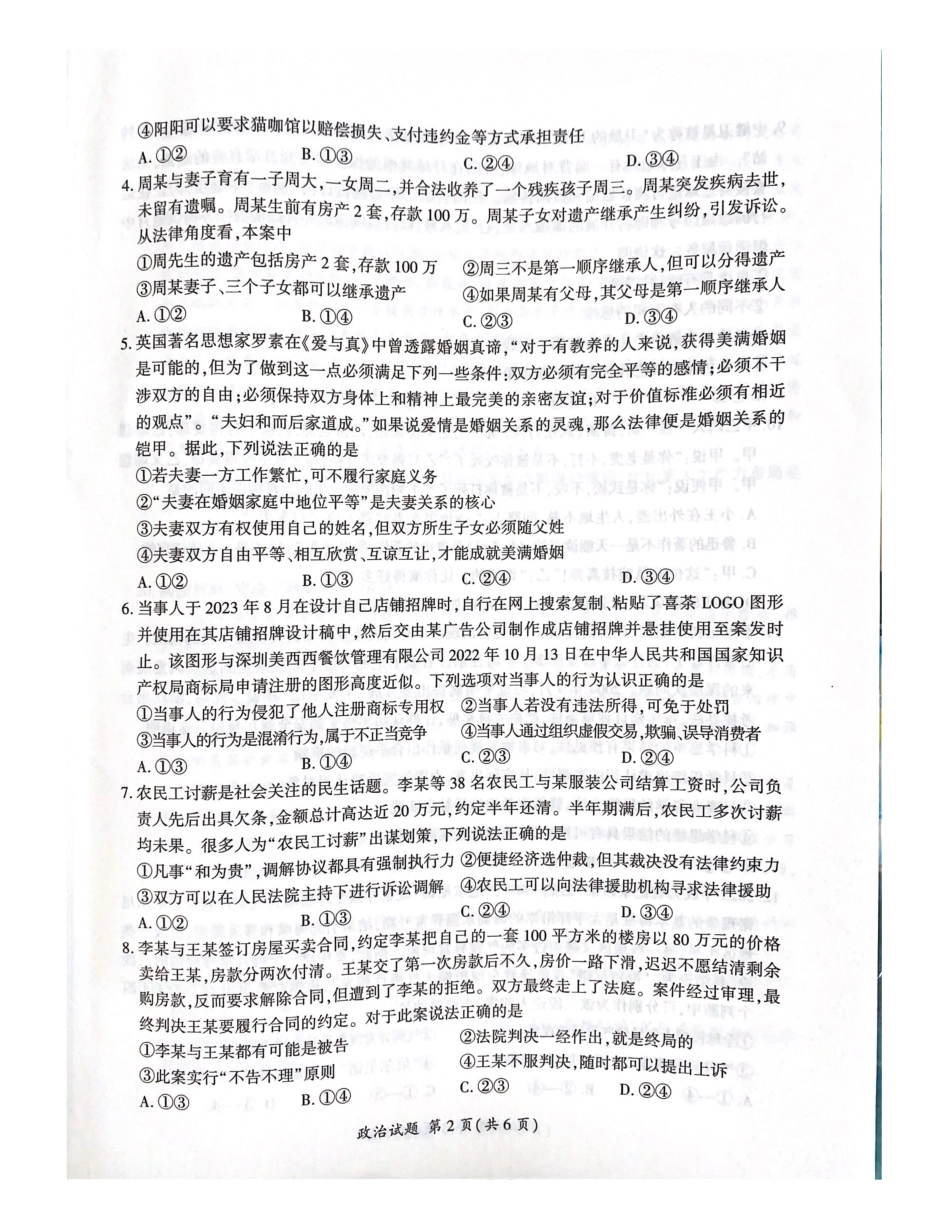 ④阳阳可以要求猫咖馆以赔偿损失、支付违约金等方式承担责任
A. ①② B. ①③ C. ②④ D. ③④
4. 周某与妻子育有一子周大,一女周二,并合法收养了一个残疾孩子周三。周某突发疾病去世,
未留有遗嘱。周某生前有房产2套,存款100万。周某子女对遗产继承产生纠纷,引发诉讼。
从法律角度看,本案中
①周先生的遗产包括房产2套,存款100万 ②周三不是第一顺序继承人,但可以分得遗产
③周某妻子、三个子女都可以继承遗产 ④如果周某有父母,其父母是第一顺序继承人
A. ①② B. ①④ C. ②③ D. ③④
5. 英国著名思想家罗素在《爱与真》中曾透露婚姻真谛,“对于有教养的人来说,获得美满婚姻
是可能的,但为了做到这一点必须满足下列一些条件:双方必须有完全平等的感情;必须不干
涉双方的自由;必须保持双方身体上和精神上最完美的亲密友谊;对于价值标准必须有相近
的观点”。“夫妇和而后家道成。”如果说爱情是婚姻关系的灵魂,那么法律便是婚姻关系的
铠甲。据此,下列说法正确的是
①若夫妻一方工作繁忙,可不履行家庭义务
②“夫妻在婚姻家庭中地位平等”是夫妻关系的核心
③夫妻双方有权使用自己的姓名,但双方所生子女必须随父姓
④夫妻双方自由平等、相互欣赏、互谅互让,才能成就美满婚姻
A. ①② B. ①③ C. ②④ D. ③④
6. 当事人于2023年8月在设计自己店铺招牌时,自行在网上搜索复制、粘贴了喜茶LOGO图形
并使用在其店铺招牌设计稿中,然后交由某广告公司制作成店铺招牌并悬挂使用至案发时
止。该图形与深圳美西西餐饮管理有限公司2022年10月13日在中华人民共和国国家知识
产权局商标局申请注册的图形高度近似。下列选项对当事人的行为认识正确的是
①当事人的行为侵犯了他人注册商标专用权 ②当事人若没有违法所得,可免于处罚
③当事人的行为是混淆行为,属于不正当竞争 ④当事人通过组织虚假交易,欺骗、误导消费者
A. ①③ B. ①④ C. ②③ D. ②④
7. 农民工讨薪是社会关注的民生话题。李某等38名农民工与某服装公司结算工资时,公司负
责人先后出具欠条,金额总计高达近20万元,约定半年还清。半年期满后,农民工多次讨薪
均未果。很多人为“农民工讨薪”出谋划策,下列说法正确的是
①凡事“和为贵”,调解协议都具有强制执行力 ②便捷经济选仲裁,但其裁决没有法律约束力
③双方可以在人民法院主持下进行诉讼调解 ④农民工可以向法律援助机构寻求法律援助
A. ①② B. ①③ C. ②④ D. ③④
8. 李某与王某签订房屋买卖合同,约定李某把自己的一套100平方米的楼房以80万元的价格
卖给王某,房款分两次付清。王某交了第一次房款后不久,房价一路下滑,迟迟不愿结清剩余
购房款,反而要求解除合同,但遭到了李某的拒绝。双方最终走上了法庭。案件经过审理,最
终判决王某要履行合同的约定。对于此案说法正确的是
①李某与王某都有可能是被告 ②法院判决一经作出,就是终局的
③此案实行“不告不理”原则 ④王某不服判决,随时都可以提出上诉
A. ①③ B. ①④ C. ②③ D. ②④
政治试题 第2页(共6页)